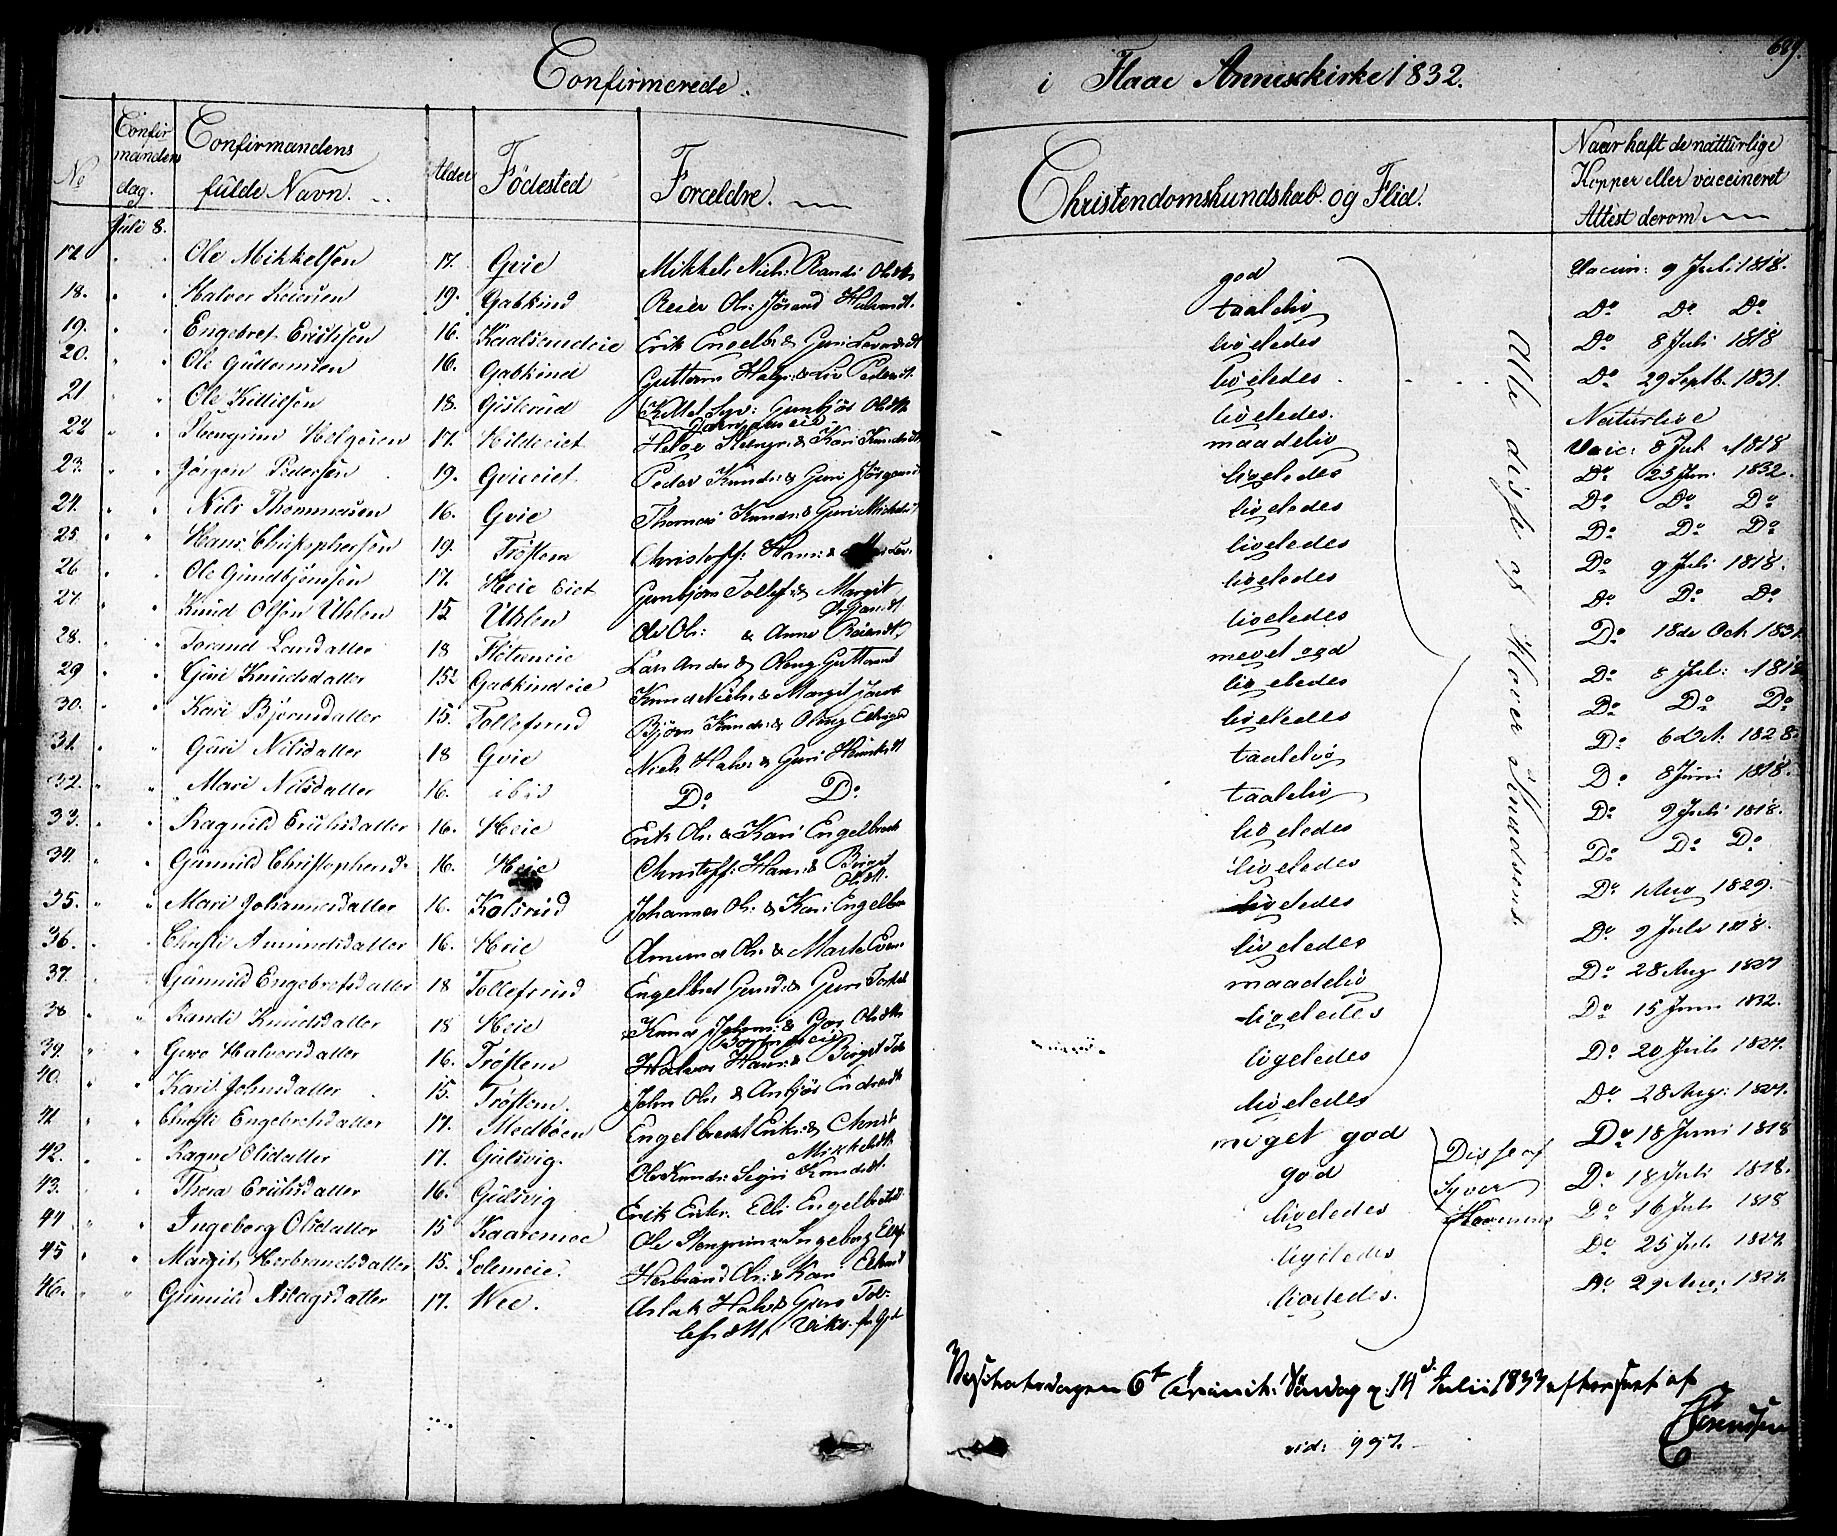 Confirmerede i Flaae Annexkirke 1832.
689.
No | Confirmandens dag. | Confirmandens fulde Navn. | Alder | Födested | Forældre. | Christendomskundskab og Flid. | Naar haft de naturlige Kopper eller vaccineret Attest derom
Juli 8.
17. Ole Mikkelsen 17. Gvie Mikkels Niels: Randi Olsdtr god Vaccin: 9 Juli 1818.
18. Halvor Reiersen 19. Gabkind Reier Ols: Jörand Halvorsdt. taalelig Do Do Do
19. Engebret Erichsen 16. Kaalsrudeie Erik Engelbr: & Guri ligeledes Do 8 Juli 1818
20. Ole Guttormsen 16. Gabkind Guttorm Halv: & Liv Pedersdt. ligeledes Do 29 Septb. 1831.
21 Ole Kittilsen 18. Gislerud Kittel Syv: Gunbjör Olsdtr ligeledes. Naturlige
22 Stengrim Helgesen 17. Hilderiet Helge Stengr: & Kari Knudsdt maadelig Vacc: 8 Jul 1818
23. Jörgen Pedersen 19. Gvieeiet Peder Knuds: & Guri ligeledes Do 25 Juni 1832.
24. Nils Thommesen 16. Gvie Thomas Knuds: & Guri Mickelsdt ligeledes Do Do Do
25. Hans Christophersen 19. Tröstem Christoff: Hans: & ligeledes Do Do Do
26 Ole Gundbjörnsen 17. Heie Eiet Gunbjörn Tollefs: & Margit ligeledes Do 9 Juli 1818.
27. Knud Olsen Uhlen 15 Uhlen Ole Ols: & Anne Reiersdt ligeledes Do Do Do
28. Torand Larsdatter 18 Flötneeie Lars Anders: & Oloug Guttormsd meget god Do 18de Oct 1831.
29 Guri Knudsdatter 15½ Gabkindeie Knud Niels: & Margit Jacob ligeledes Do 8 Juli: 1818
30. Kari Björnsdatter 15. Tollefsrud Björn Knuds: & Oloug ligeledes Do Do Do
31. Guri Nilsdatter 18 Gvie Niels Halv: & Guri taalelig Do 6 Oct: 1828.
32. Mari Nilsdatter 16. ibid Do Do taalelig Do 8 Juni 1818.
33. Ragnild Erichsdatter 16. Heie Erik Ols: & Kari Engelbret ligeledes Do 9 Juli 1818.
34. Gunnild Christophersd. 16. Heie Christoff: Hans: & Birgit Olsdt. ligeledes Do Do Do
35. Mari Johannesdatter 16. Kolsrud Johannes Ols: & Kari Engelbr ligeledes Do 1 Aug 1829.
36. Christi Amundsdatter 16. Heie Amund Ols: & Marte ligeledes Do 9 Juli 1818.
37. Gunnild Engebretsdatter 18 Tollefsrud Engelbret Gund: & Guri maadelig Do 28 Aug 1827
38 Randi Knudsdatter 18 Heie Knud Johan: & Olsdtr ligeledes Do 15 Juni 1832.
39. Guro Halvorsdatter 16. Tröstem Halvor Hans: & Birgit ligeledes Do 20 Juli 1827.
40. Kari Johnsdatter 15. Tröstem. John Ols: & Anbjör Endresdt ligeledes Do 28 Aug: 1827.
41 Christi Engebretsdatter 17. Medböen Engelbrecht Eriks: & Christi Mikkelsdtr meget god Do 18 Juni 1818
42. Ragne Olsdatter 17. Gulsvig. Ole Knuds: Sigri Knudsdt. god Do 18 Juli 1818.
43. Thora Erichsdatter 16. Gulsvig Erik Eriks: Eli Engelbretsd ligeledes Do 16 Juli 1818
44 Ingeborg Olsdatter 15 Kaaremoe Ole Stengrims: Ingeborg ligeledes Do 25 Juli 1827.
45 Margit Herbrandsdatter 15. Solemeie. Herbrand Ols: & Kari ligeledes. Do 29 Aug: 1827.
46. Gunnild Aslagsdatter 17. Wee. Aslak Halv: & Guro Tollefsdtr
Alle disse af Iver Knudsens
Disse af Syver
6t Trinit: Söndag 14d Julii 1833 af
Sörensen
vid: 997.